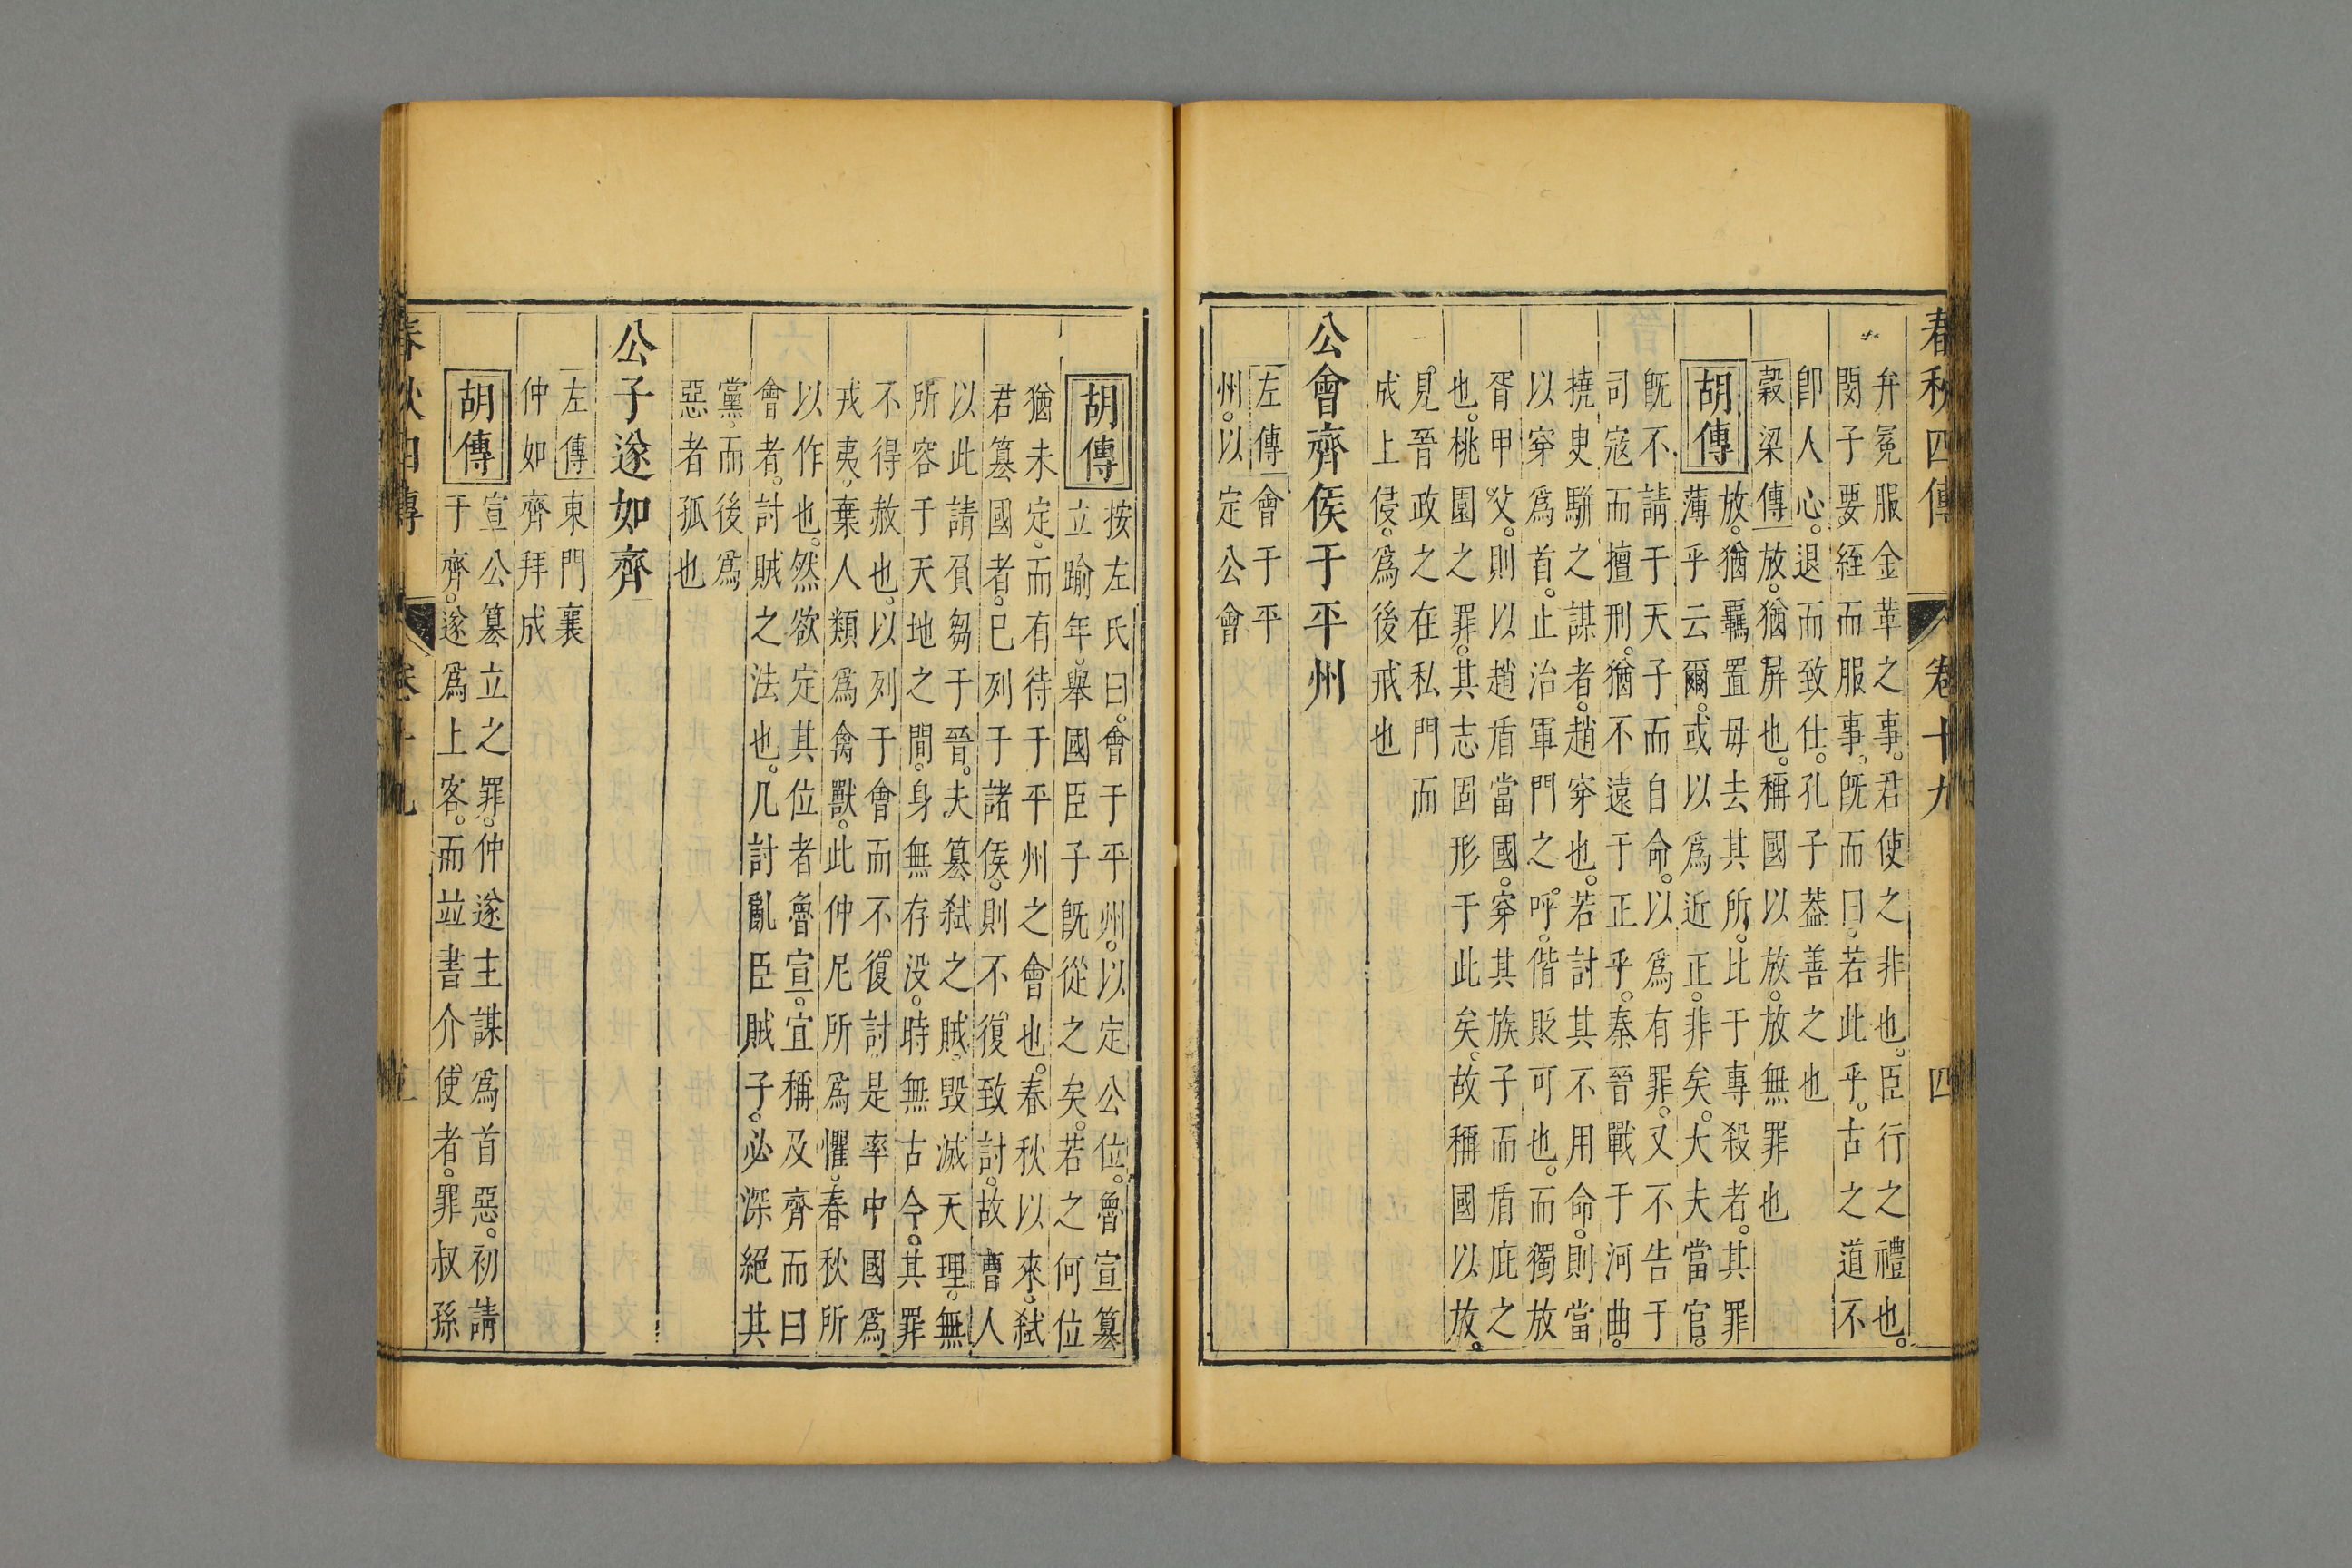 春秋四傳 卷十九 四
弁冕服金革之事。君使之非也。臣行之禮也。
閔子要絰而服事。旣而曰。若此乎。古之道不
卽人心。退而致仕。孔子葢善之也
穀梁傳 放。猶屏也。稱國以放。放無罪也
胡傳 放。猶羈置毋去其所。比于專殺者。其罪
薄乎云爾。或以爲近正。非矣。大夫當官。
旣不請于天子而自命。以爲有罪。又不告于
司寇而擅刑。猶不遠于正乎。秦晉戰于河曲。
撓臾駢之謀者。趙穿也。若討其不用命。則當
以穿爲首。止治軍門之呼。偕貶可也。而獨放
胥甲父。則以趙盾當國。穿其族子而盾庇之
也。桃園之罪。其志固形于此矣。故稱國以放。
見晉政之在私門而
成上侵。爲後戒也
公會齊侯于平州
左傳 會于平
州。以定公會
胡傳 按左氏曰。會于平州。以定公位。魯宣篡
立踰年。舉國臣子旣從之矣。若之何位
猶未定。而有待于平州之會也。春秋以來。弑
君篡國者。已列于諸侯。則不復致討。故曹人
以此請負芻于晉。夫篡弑之賊。毀滅天理。無
所容于天地之間。身無存没。時無古今。其罪
不得赦也。以列于會而不復討。是率中國爲
戎夷。棄人類爲禽獸。此仲尼所爲懼。春秋所
以作也。然欲定其位者魯宣。宜稱及齊而曰
會者。討賊之法也。凡討亂臣賊子。必深絕其
黨。而後爲
惡者孤也
公子遂如齊
左傳 東門襄
仲如齊拜成
胡傳 宣公篡立之罪。仲遂主謀爲首惡。初請
于齊。遂爲上客。而竝書介使者。罪叔孫
春秋四傳 卷十九 五